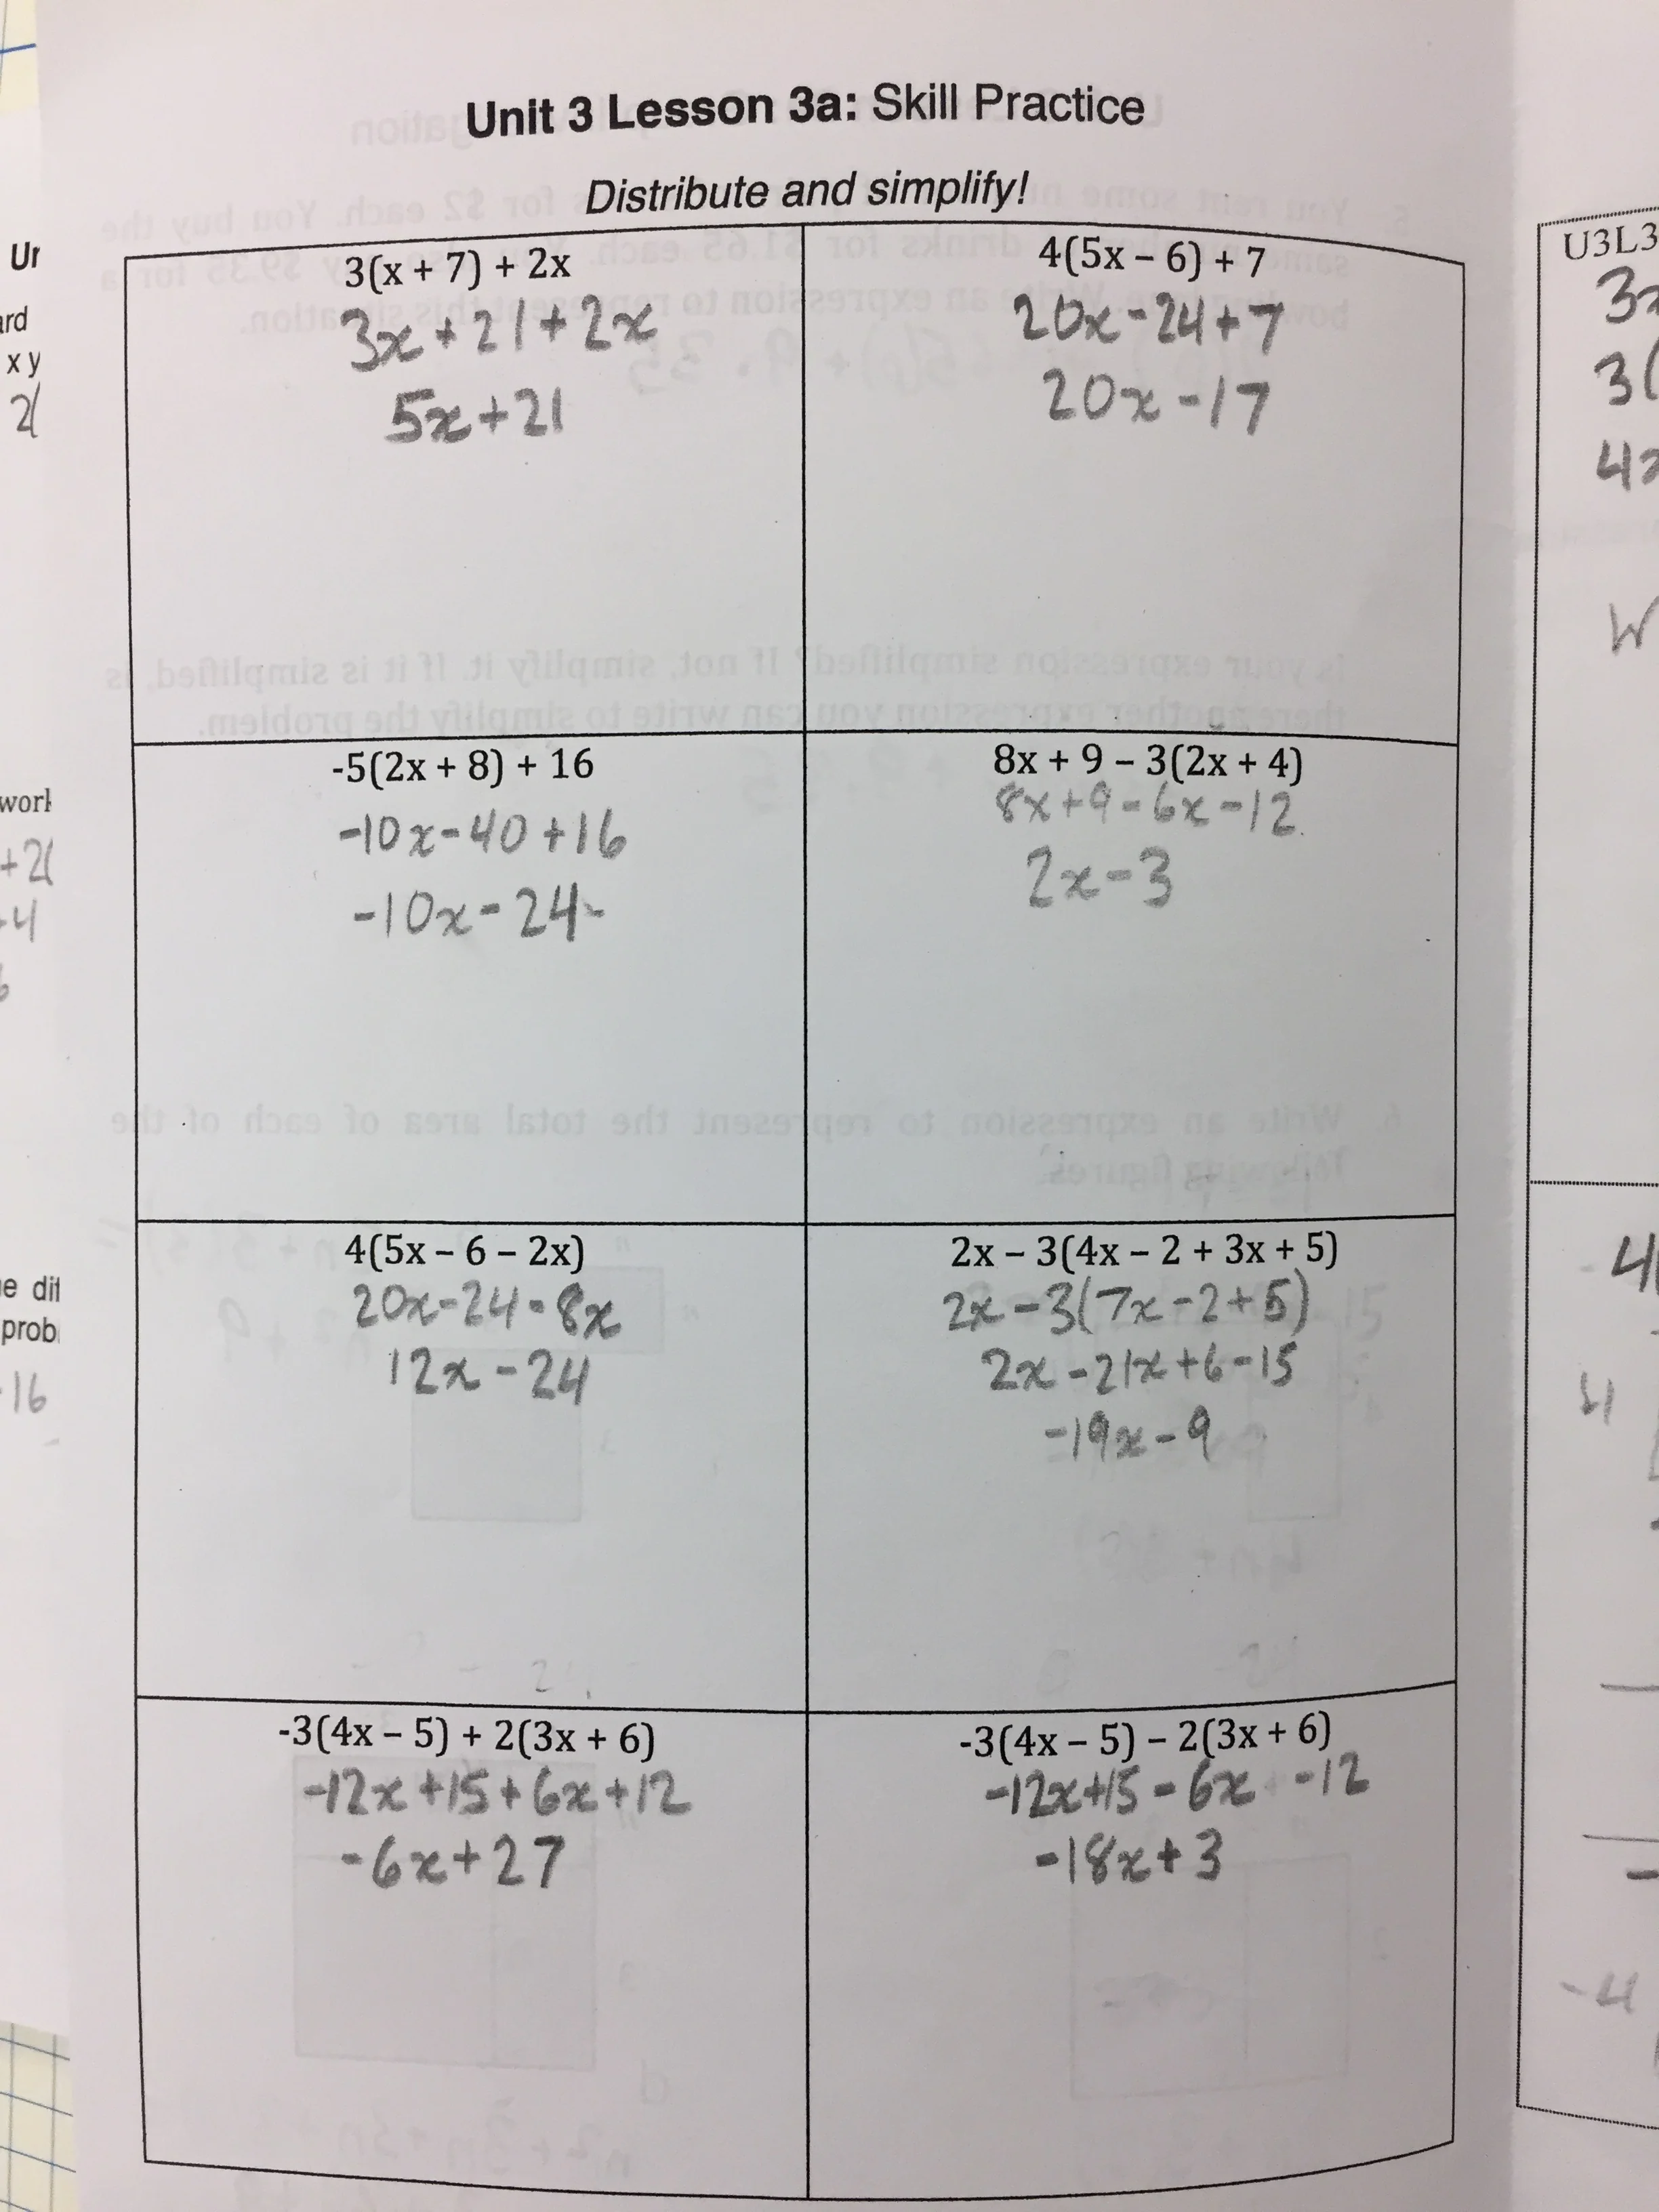 Unit 3 Lesson 3a: Skill Practice
Distribute and simplify!
3(x + 7) + 2x
3x + 21 + 2x
5x + 21
4(5x – 6) + 7
20x - 24 + 7
20x - 17
-5(2x + 8) + 16
-10x - 40 + 16
-10x - 24
8x + 9 – 3(2x + 4)
8x + 9 - 6x - 12
2x - 3
4(5x – 6 – 2x)
20x - 24 - 8x
12x - 24
2x – 3(4x – 2 + 3x + 5)
2x - 3(7x - 2 + 5)
2x - 21x + 6 - 15
-19x - 9
-3(4x – 5) + 2(3x + 6)
-12x + 15 + 6x + 12
-6x + 27
-3(4x – 5) – 2(3x + 6)
-12x + 15 - 6x - 12
-18x + 3
Ur
ard
x y
2(
work
+2(
-4
prob
-16
U3L3
3(
W
-4